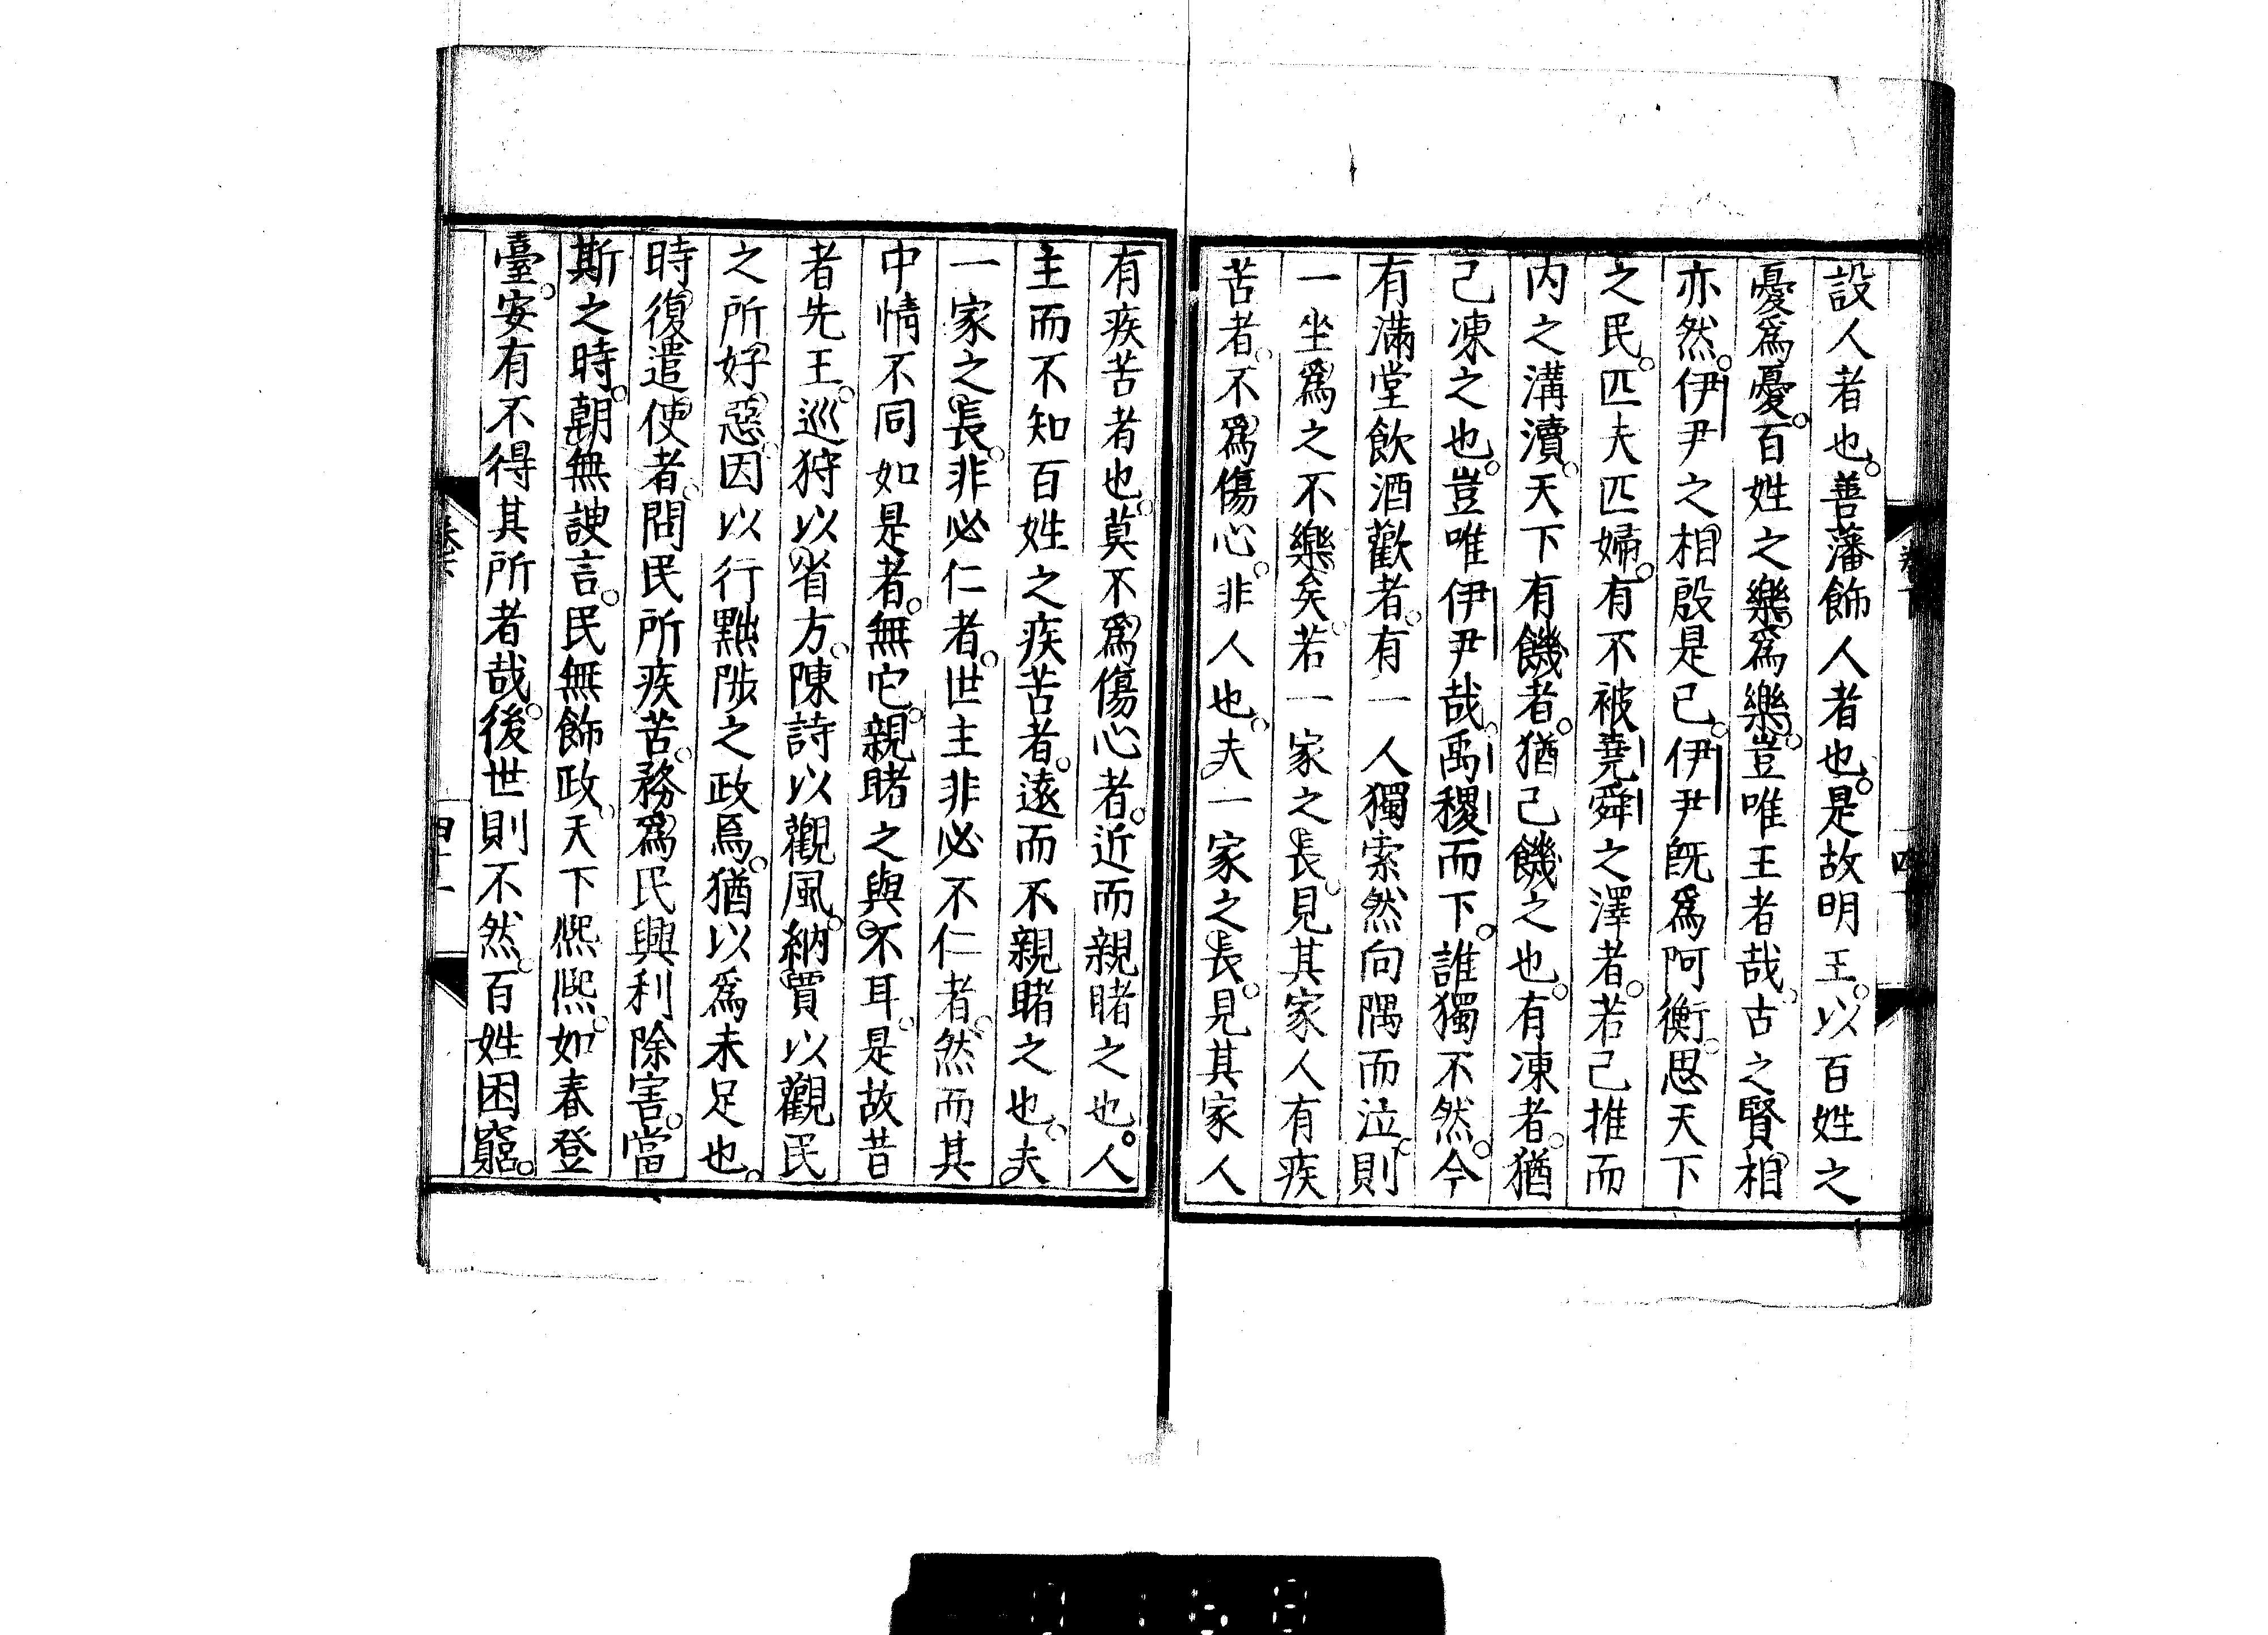 設人者也。善藩飾人者也。是故明王。以百姓之
憂爲憂。百姓之樂爲樂。豈唯王者哉。古之賢相
亦然。伊尹之相殷是已。伊尹旣爲阿衡。思天下
之民。匹夫匹婦。有不被堯舜之澤者。若己推而
内之溝瀆。天下有饑者。猶己饑之也。有凍者。猶
己凍之也。豈唯伊尹哉。禹稷而下。誰獨不然。今
有滿堂飮酒歡者。有一人獨索然向隅而泣。則
一坐爲之不樂矣。若一家之長。見其家人有疾
苦者。不爲傷心。非人也。夫一家之長。見其家人
有疾苦者也。莫不爲傷心者。近而親睹之也。人
主而不知百姓之疾苦者。遠而不親睹之也。夫
一家之長。非必仁者。世主非必不仁者。然而其
中情不同如是者。無它。親睹之與不耳。是故昔
者先王。巡狩以省方。陳詩以觀風。納賈以觀民
之所好惡。因以行黜陟之政焉。猶以爲未足也。
時復遣使者。問民所疾苦。務爲民興利除害。當
斯之時。朝無諛言。民無飾政。天下熙熙。如春登
臺。安有不得其所者哉。後世則不然。百姓困窮。